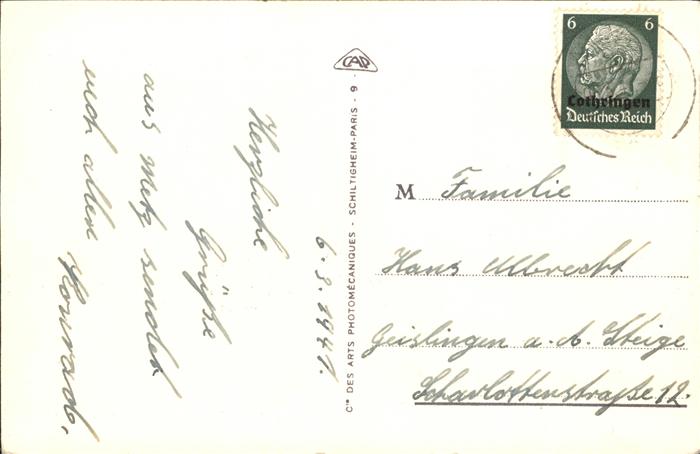 6.3.1941.
Herzliche
Grüße
aus Metz sendet
euch allen
Konrad.
CAP
Cie DES ARTS PHOTOMÉCANIQUES - SCHILTIGHEIM-PARIS - 9 -
6 6
Lothringen
Deutsches Reich
M Familie
Hans Albrecht
Geislingen a. A. Steige
Scharlottenstraße 12.